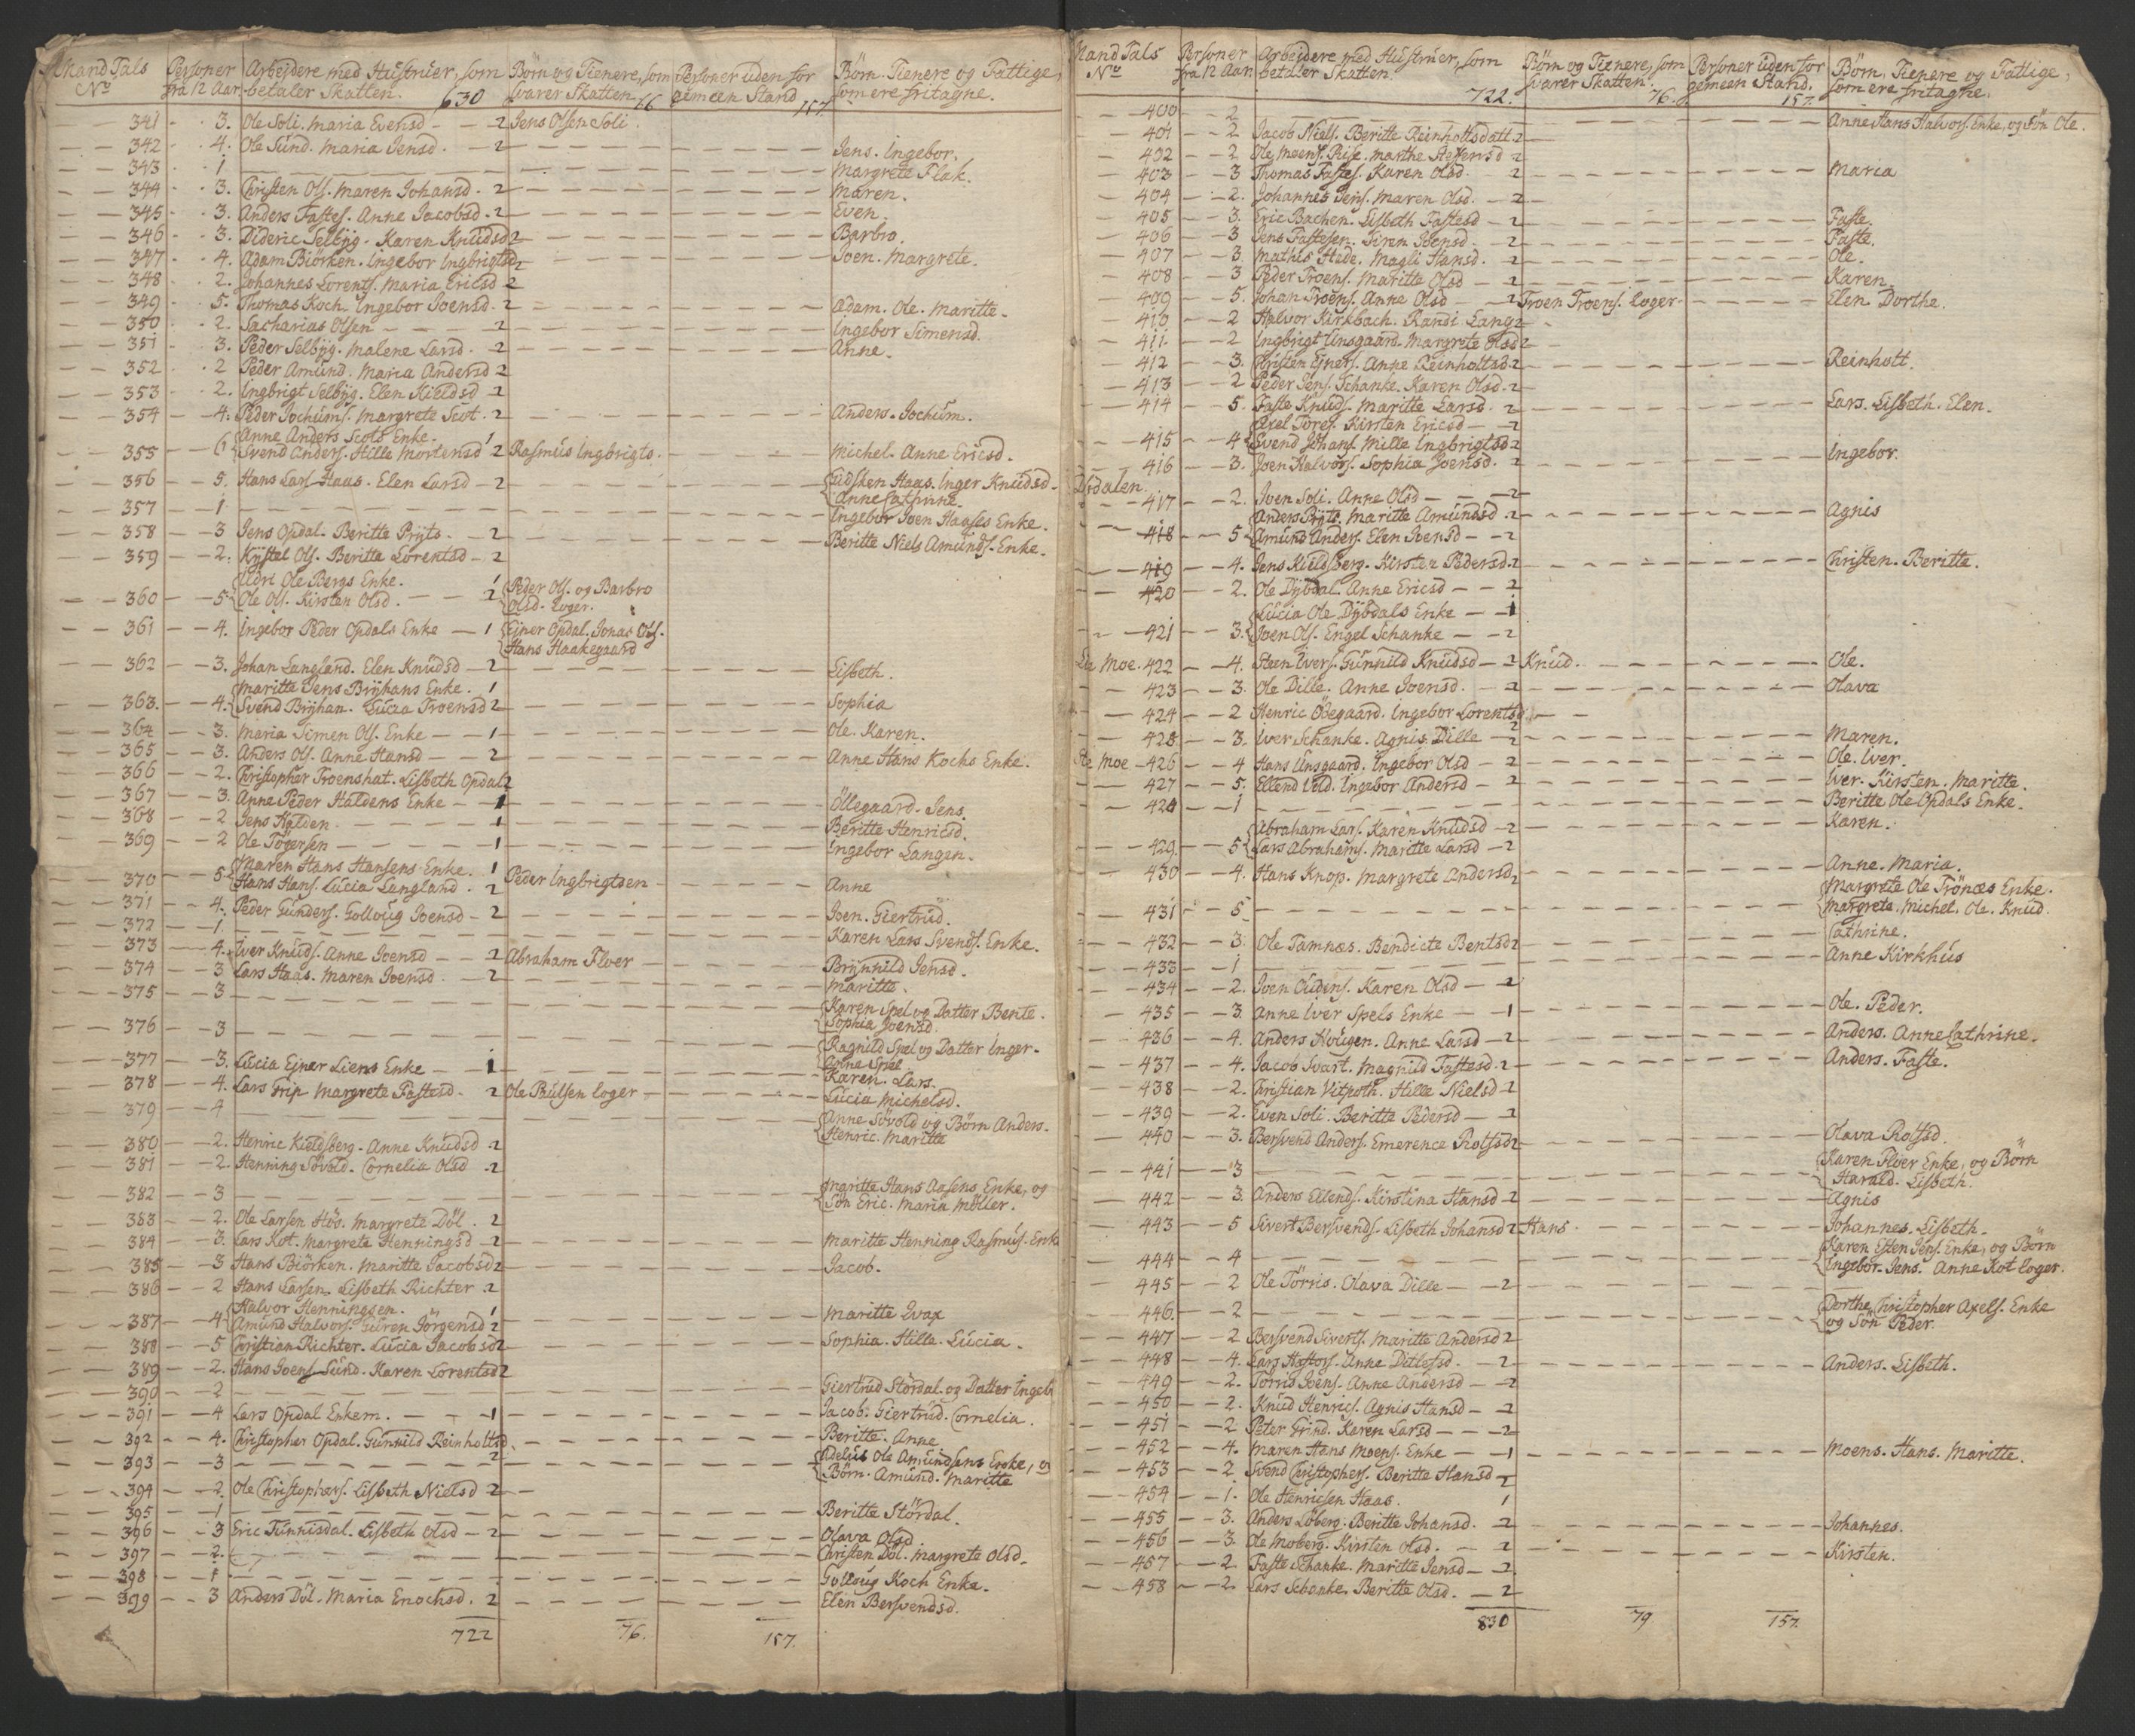 Mand Tals No Personer fra 12 Aar Arbejdere med Hustruer, som betaler Skatten. 630 Börn og Tienere, som svarer Skatten 66 Personer uden for gemeen Stand 157. Börn. Tienere og Fattige, som ere fritagne.
341 3. Ole Soli. Maria Evensd 2 Jens Olsen Soli.
342 4. Ole Sund. Maria Jensd. 2 Jens. Ingebor.
343 1 Margrete Flak.
344 3. Christen Ols. Maren Johansd. 2 Maren.
345 3. Anders Fastes. Anne Jacobsd. 2 Even.
346 3. Dideric Selbÿg. Karen Knudsd 2 Barbro.
347 4. Adam Biörken. Ingebor Ingbrigtsd 2 Joen. Margrete.
348 2. Johannes Lorents. Maria Ericsd 2
349 5. Thomas Koch. Ingebor Joensd. 2 Adam. Ole. Maritte.
350 2. Sacharias Olsen 2 Ingebor Simensd.
351 3. Peder Selbÿg. Malene Larsd. 2 Anne.
352 2 Peder Amund. Maria Andersd 2
353 2. Ingbrigt Selbÿg. Elen Kieldsd 2
354 4. Peder Jochums. Margrete Scot. 2 Anders. Jochum.
Anne Anders Scots Enke. 1
355 6 Svend Anders. Hille Mortensd 2 Rasmus Ingbrigts. Michel. Anne Ericsd.
356 5. Hans Lars. Haas. Elen Larsd 2 Haas. Inger Knudsd.
Anne Cathrine.
357 1 Ingebor Joen Haases Enke.
358 3 Jens Opdal. Beritte Prÿts. 2 Beritte Niels Amunds. Enke.
359 2. Kÿstel Ols. Beritte Lorentsd 2
Udri Ole Bergs Enke. 1
360 5 Ole Ols. Kirsten Olsd. 2 Peder Ols. og Barbro
Olsd. loger.
361 4. Ingebor Peder Opdals Enke 1 Ejner Opdal. Jonas Ols.
Hans Haakegaard
362 3. Johan Langland. Elen Knudsd 2 Lisbeth.
Maritte Jens Brÿhans Enke. 1
363. 4. Svend Brÿhan. Lucia Troensd 2 Sophia
364 3. Maria Simen Ols. Enke 1 Ole. Karen.
365 3. Anders Ols. Anne Hansd 2 Anne Hans Kochs Enke.
366 2. Christopher Troenshat. Lisbeth Opdal 2
367 3. Anne Peder Haldens Enke 1 Öllegaard. Jens.
368 2 Jens Halden. 1 Beritte Henricsd.
369 2 Ole Tögersen 1 Ingebor Langen.
Maren Hans Hansens Enke. 1
370 5 Hans Hans. Lucia Langland. 2 Peder Ingbrigtsen Anne
371 4. Peder Gunders. Gollvüg Joensd 2 Joen. Giertrud.
372 1. Karen Lars Svends. Enke.
373 4. Iver Knuds. Anne Joensd 2 Abraham Floer Brÿnnild Jensd.
374 3 Lars Haas. Maren Joensd. 2 Maritte.
375 3 Karen Spel og Datter Bente.
Sophia Joensd.
376 3 Ragnild Spel og Datter Inger.
Anne Spel.
377 3. Lucia Ejner Liens Enke 1 Karen. Lars.
378 4. Lars Trip Margrete Fastesd. 2 Ole Paulsen loger Lucia Michelsd.
379 4 Anne Sövold og Börn Anders.
Henric. Maritte
380 2. Henric Kieldsberg. Anne Knudsd 2
381 2. Henning Sövold. Cornelia Olsd 2
382 3 Maritte Hans Aasens Enke, og
Sön Eric. Maria Möller.
383 2. Ole Larsen Hös. Margrete Döl. 2
384 3. Lars Kot. Margrete Henningsd 2 Maritte Henning Rasmus. Enke
385 3 Hans Biörken. Maritte Jacobsd 2 Jacob.
386 2 Hans Larsen. Lisbeth Richter 2
Halvor Henningsen. 1
387 4 Amund Halvors. Guren Jörgensd 2 Maritte Ivax
388 5 Christian Richter. Lucia Jacobsd 2 Sophia. Hille. Lucia.
389 2. Hans Joens. Sund. Karen Lorentsd 2
390 2 Giertrud Stördal. og Datter Ingeb
391 4 Lars Opdal Enkem. 1 Jacob. Giertrud. Cornelia.
392 4. Christopher Opdal. Gunnild Reinholtsd 2 Beritte. Anne
393 3 Adelus Ole Amundsens Enke, og
Börn. Amund. Maritte
394 2 Ole Christophers. Lisbeth Nielsd 2
395 1 Beritte Stördal.
396 3 Eric Tunnisdal. Lisbeth Olsd 2 Olava Olsd
397 2. Christen Döl. Margrete Olsd.
398 1 Gollvug Koch Enke.
399 3 Anders Döl. Maria Enochsd. 2 Elen Bersvendsd.
722 76. 157.
Mand Tals No Personer fra 12 Aar Arbejdere med Hustruer, som betaler Skatten 722. Börn og Tienere, som svarer Skatten. 76. Personer uden for gemeen Stand. 157. Börn, Tienere og Fattige, som ere fritagne.
400 2 Anne Hans Halvors. Enke, og Sön Ole.
401 2 Jacob Niels. Beritte Reinholtsdatt 2
402 2 Ole Moens. Rise. Marthe Steffensd 2
403 3 Thomas Fastes. Karen Olsd. 2 Maria
404 2. Johannes Jens. Maren Olsd. 2
405 3. Eric Bachen. Lisbeth Fastesd 2 Faste.
406 3 Jens Fastesen. Siren Joensd. 2 Faste.
407 3 Mathis Stede. Magli Hansd. 2 Ole.
408 3 Peder Troens. Maritte Olsd 2 Karen
409 5. Johan Troens. Anne Olsd 2 Troen Troens. loger Elen Dorthe.
410 2 Halvor Kirkbach. Randi Lang 2
411 2 Ingbrigt Unsgaard. Margrete Olsd 2
412 3. Christen Ejners. Anne Reinholtsd 2 Reinholt.
413 2 Peder Jens. Schanke. Karen Olsd. 2
414 5. Faste Knuds. Maritte Larsd. 2 Lars. Lisbeth. Elen.
Axel Tores. Kirsten Ericsd 2
415 4 Svend Johans. Mille Ingbrigtsd 2
416 3. Joen Halvors. Sophia Joensd. 2 Ingebor.
417 2. Iven Soli. Anne Olsd 2
Anders Prÿts. Maritte Amundsd. 2 Agnis
418 5 Amund Anders. Elen Ivensd 2
419 4. Jens Kieldsberg. Kirsten Pedersd. 2 Christen. Beritte.
420 2. Ole Dÿbdal. Anne Ericsd 2
Lucia Ole Dÿbdals Enke 1
421 3. Joen Ols. Engel Schanke 2
422 4. Steen Ivers. Gunnild Knudsd 2 Knud. Ole.
423 3. Ole Dille. Anne Joensd. 2 Olava
424 2 Henric Ödegaard. Ingebor Lorentsd 2
425 3. Iver Schanke. Agnis Dille 2 Maren.
Moe 426 4 Hans Unsgaard. Ingebor Olsd 2 Ole. Iver.
427 5. Ellend Uld. Ingebor Andersd 2 Iver. Kirsten. Maritte.
428 1 Beritte Ole Opdals Enke.
Abraham Lars. Karen Knudsd 2 Karen.
429 5 Lars Abrahams. Maritte Larsd 2
430 4. Hans Knop. Margrete Andersd 2 Anne. Maria.
431 5 Margrete Ole Trönæs Enke.
Margrete. Michel. Ole. Knud.
432 3. Ole Tamnæs. Bendicte Bentsd 2 Cathrine.
433 1 Anne Kirkhus
434 2. Iven Oudens. Karen Olsd 2
435 3 Anne Iver Spels Enke 1 Ole. Peder.
436 4. Anders Hougen. Anne Larsd 2 Anders. Anne Cathrine.
437 4. Jacob Svart. Magnild Fastesd. 2 Anders. Faste.
438 2. Christian Vitpoth. Hille Nielsd 2
439 2. Even Soli. Beritte Pedersd 2
440 3. Bersvend Anders. Emerence Rolfsd 2 Olava Rolfsd.
441 3 Karen Floer Enke, og Börn
Harald. Lisbeth.
442 3. Anders Ellends. Kirstina Hansd 2 Agnis
443 5 Sivert Bersvends. Lisbeth Johansd 2 Hans. Johannes. Lisbeth.
444 4 Karen Esten Jens. Enke, og Börn
Ingebor. Jens. Anne Kot loger.
445 2 Ole Törris. Olava Dille 2
446. 2 Dorthe Christopher Axels. Enke
og Sön Peder.
447 2 Bersvend Siverts. Maritte Andersd 2
448 4. Lars Hastors. Anne Ditlefsd. 2 Anders. Lisbeth.
449 2. Törris Joens. Anne Andersd 2
450 2. Knud Henrics. Agnis Hansd 2
451 2 Peter Grind. Karen Larsd 2
452 4. Maren Hans Moens. Enke 1 Moens. Hans. Maritte.
453 2 Svend Christophers. Beritte Hansd 2
454 1. Ole Henricsen Haas. 1
455 3. Anders Löberg. Beritte Johansd. 2 Johannes.
456 3. Ole Moberg. Kirsten Olsd. 2 Kirsten.
457 2. Faste Schanke. Maritte Jensd 2
458 2 Lars Schanke. Beritte Olsd. 2
830 79. 157.